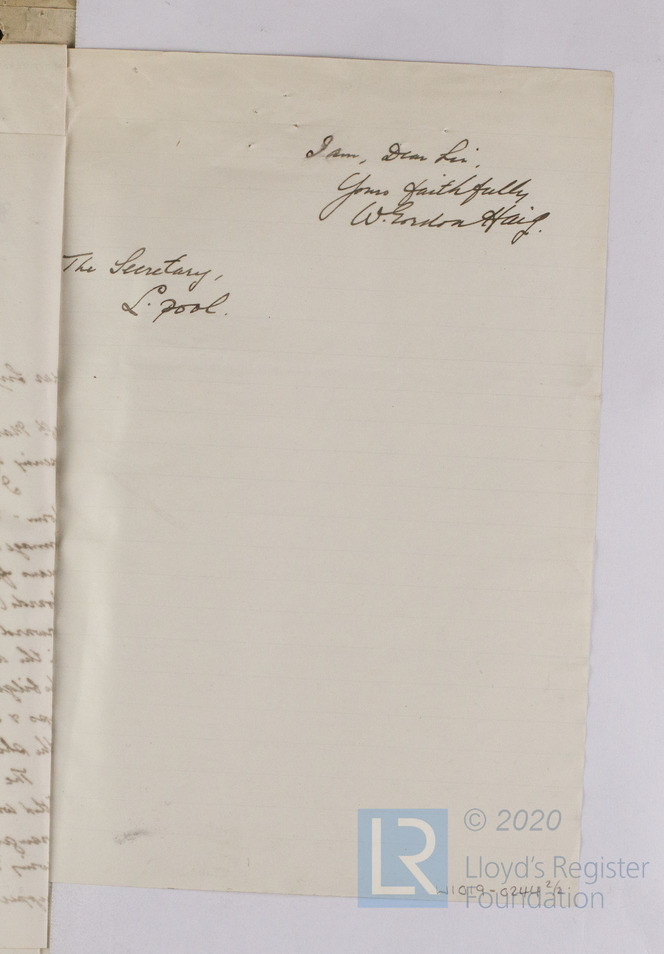 I am, Dear Sir,
Yours faithfully
W. Gordon Haig.
The Secretary,
L'pool.
LR
© 2020
Lloyd's Register
Foundation